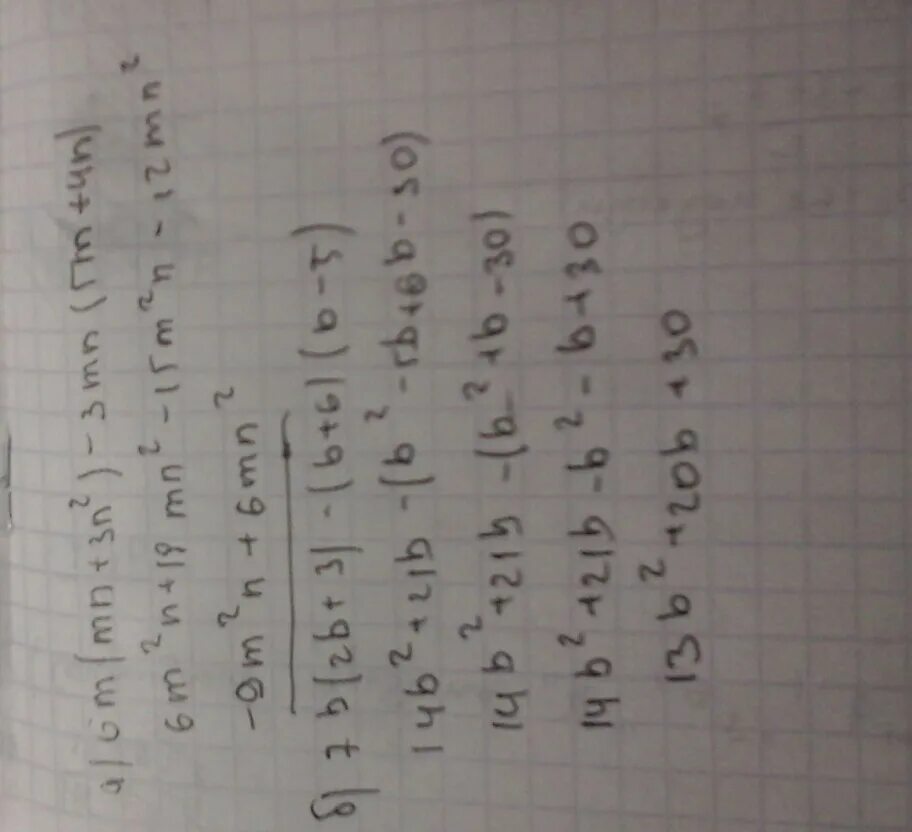 а) 6m(mn+3n²)-3mn(5m+4n)
6m²n+18mn²-15m²n-12mn²
-9m²n+6mn²
б) 7b(2b+3)-(b+6)(b-5)
14b²+21b-(b²-5b+6b-30)
14b²+21b-(b²+b-30)
14b²+21b-b²-b+30
13b²+20b+30